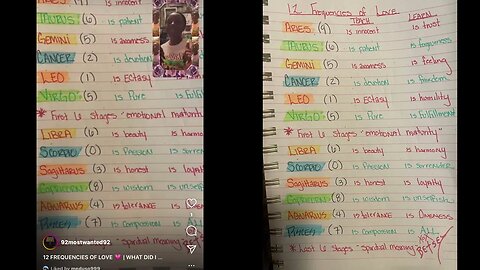 TAURUS (6) is patient
GEMINI (5) is awarness
CANCER (2) is devotion
LEO (1) is Ecstasy
VIRGO (5) is Pure is Fulfill
* First 6 stages "emotional maturity"
LIBRA (6) is beauty is harmony
SCORPIO (0) is PASSION is
SAGITARIUS (3) is honest is loyalty
CAPRICORN (8) is WISDOM is
AQUARIUS (4) is tolerance is
PISCES (7) is compassion is ALL
92mostwanted92
12 FREQUENCIES OF LOVE 💗 | WHAT DID I ...
Liked by medusa999
12 Frequencies of Love
TEACH LEARN
ARIES (9) is innocent is trust
TAURUS (6) is patient is forgivness
GEMINI (5) is awarness is feeling
CANCER (2) is devotion is freedom
LEO (1) is Ecstasy is humility
VIRGO (5) is Pure is Fulfillment
* First 6 stages "emotional maturity"
LIBRA (6) is beauty is harmony
SCORPIO (0) is PASSION is surrender
SAGITARIUS (3) is honest is loyalty
CAPRICORN (8) is WISDOM is unselfish
AQUARIUS (4) is tolerance is Oneness
PISCES (7) is compassion is ALL
* Last 6 stages "Spiritual meaning